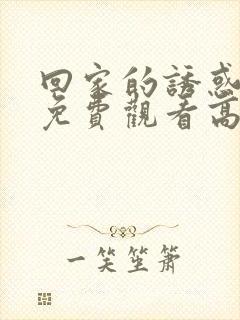 回家的誘惑
免費觀看高
一笑笙簫